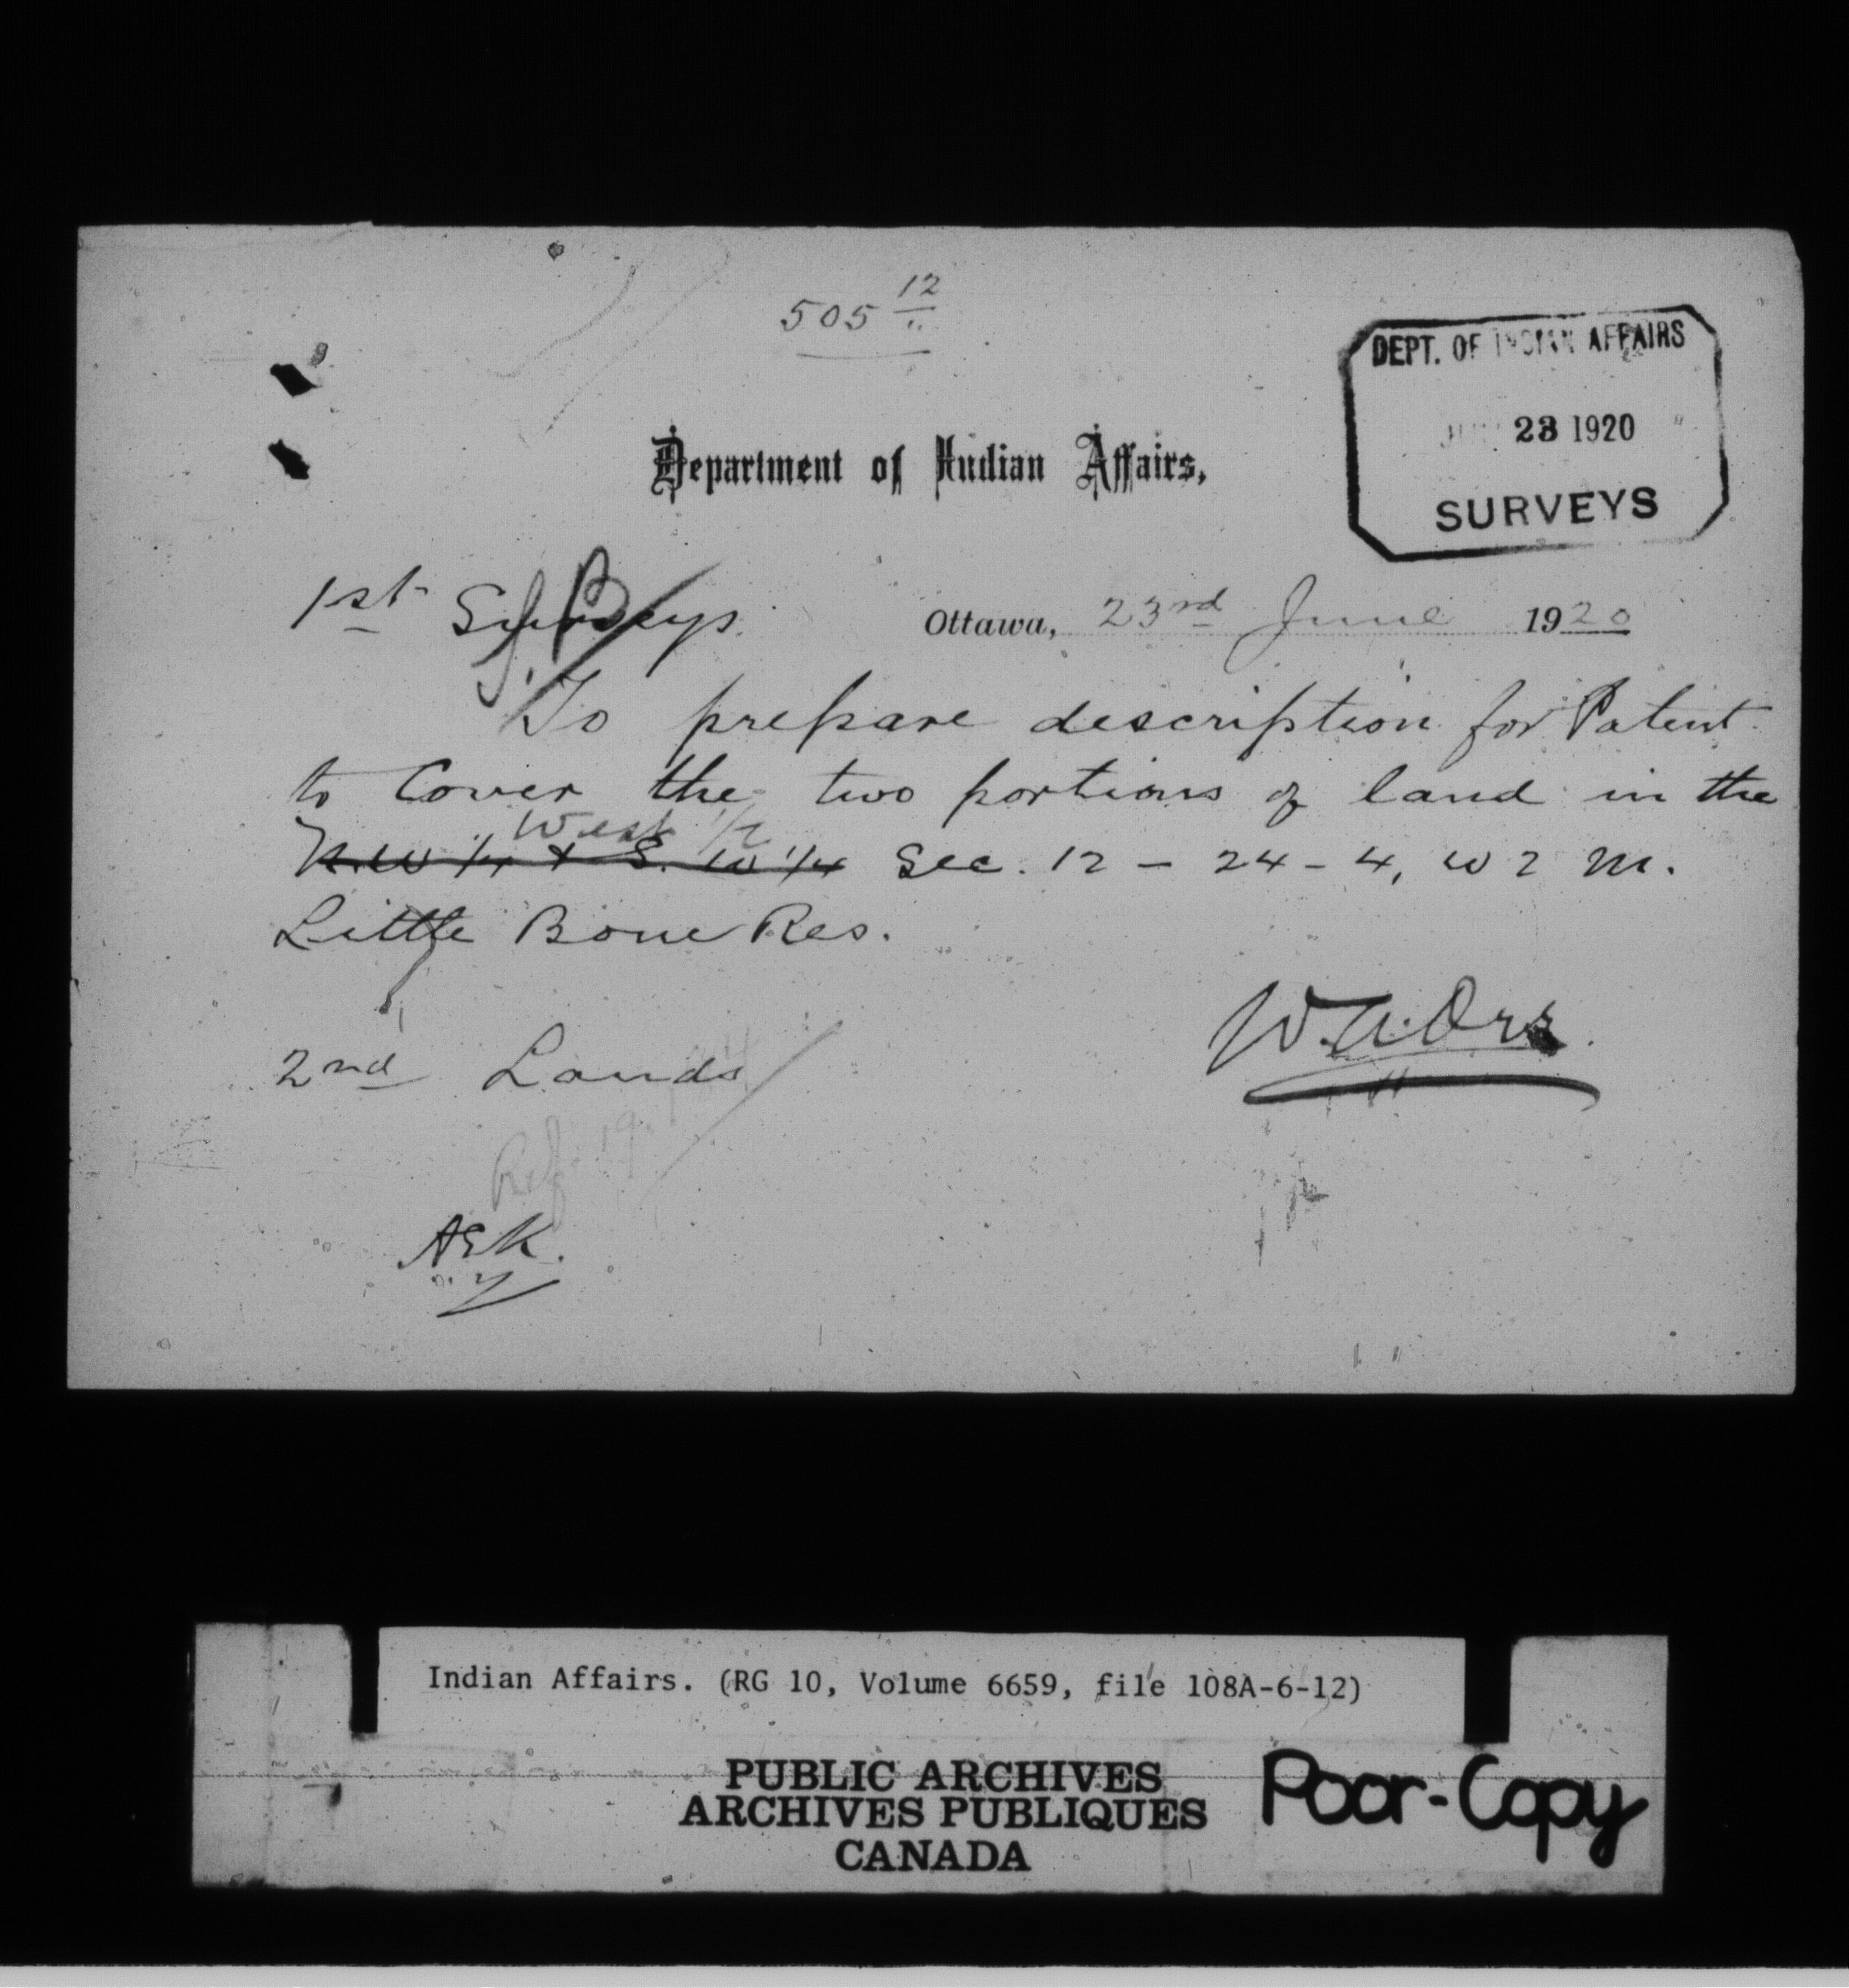 505 12
DEPT. OF INDIAN AFFAIRS
JUN 23 1920
SURVEYS
Department of Indian Affairs,
1st Surveys.
Ottawa, 23rd June 1920
To prepare description for Patent
to Cover the two portions of land in the
West 1/2
N.W 1/4 & S. W 1/4 Sec. 12 - 24 - 4, W 2 M.
Little Bone Res.
W.A.Orr.
2nd Lands
A E K.
Indian Affairs. (RG 10, Volume 6659, file 108A-6-12)
PUBLIC ARCHIVES
ARCHIVES PUBLIQUES
CANADA
Poor-Copy